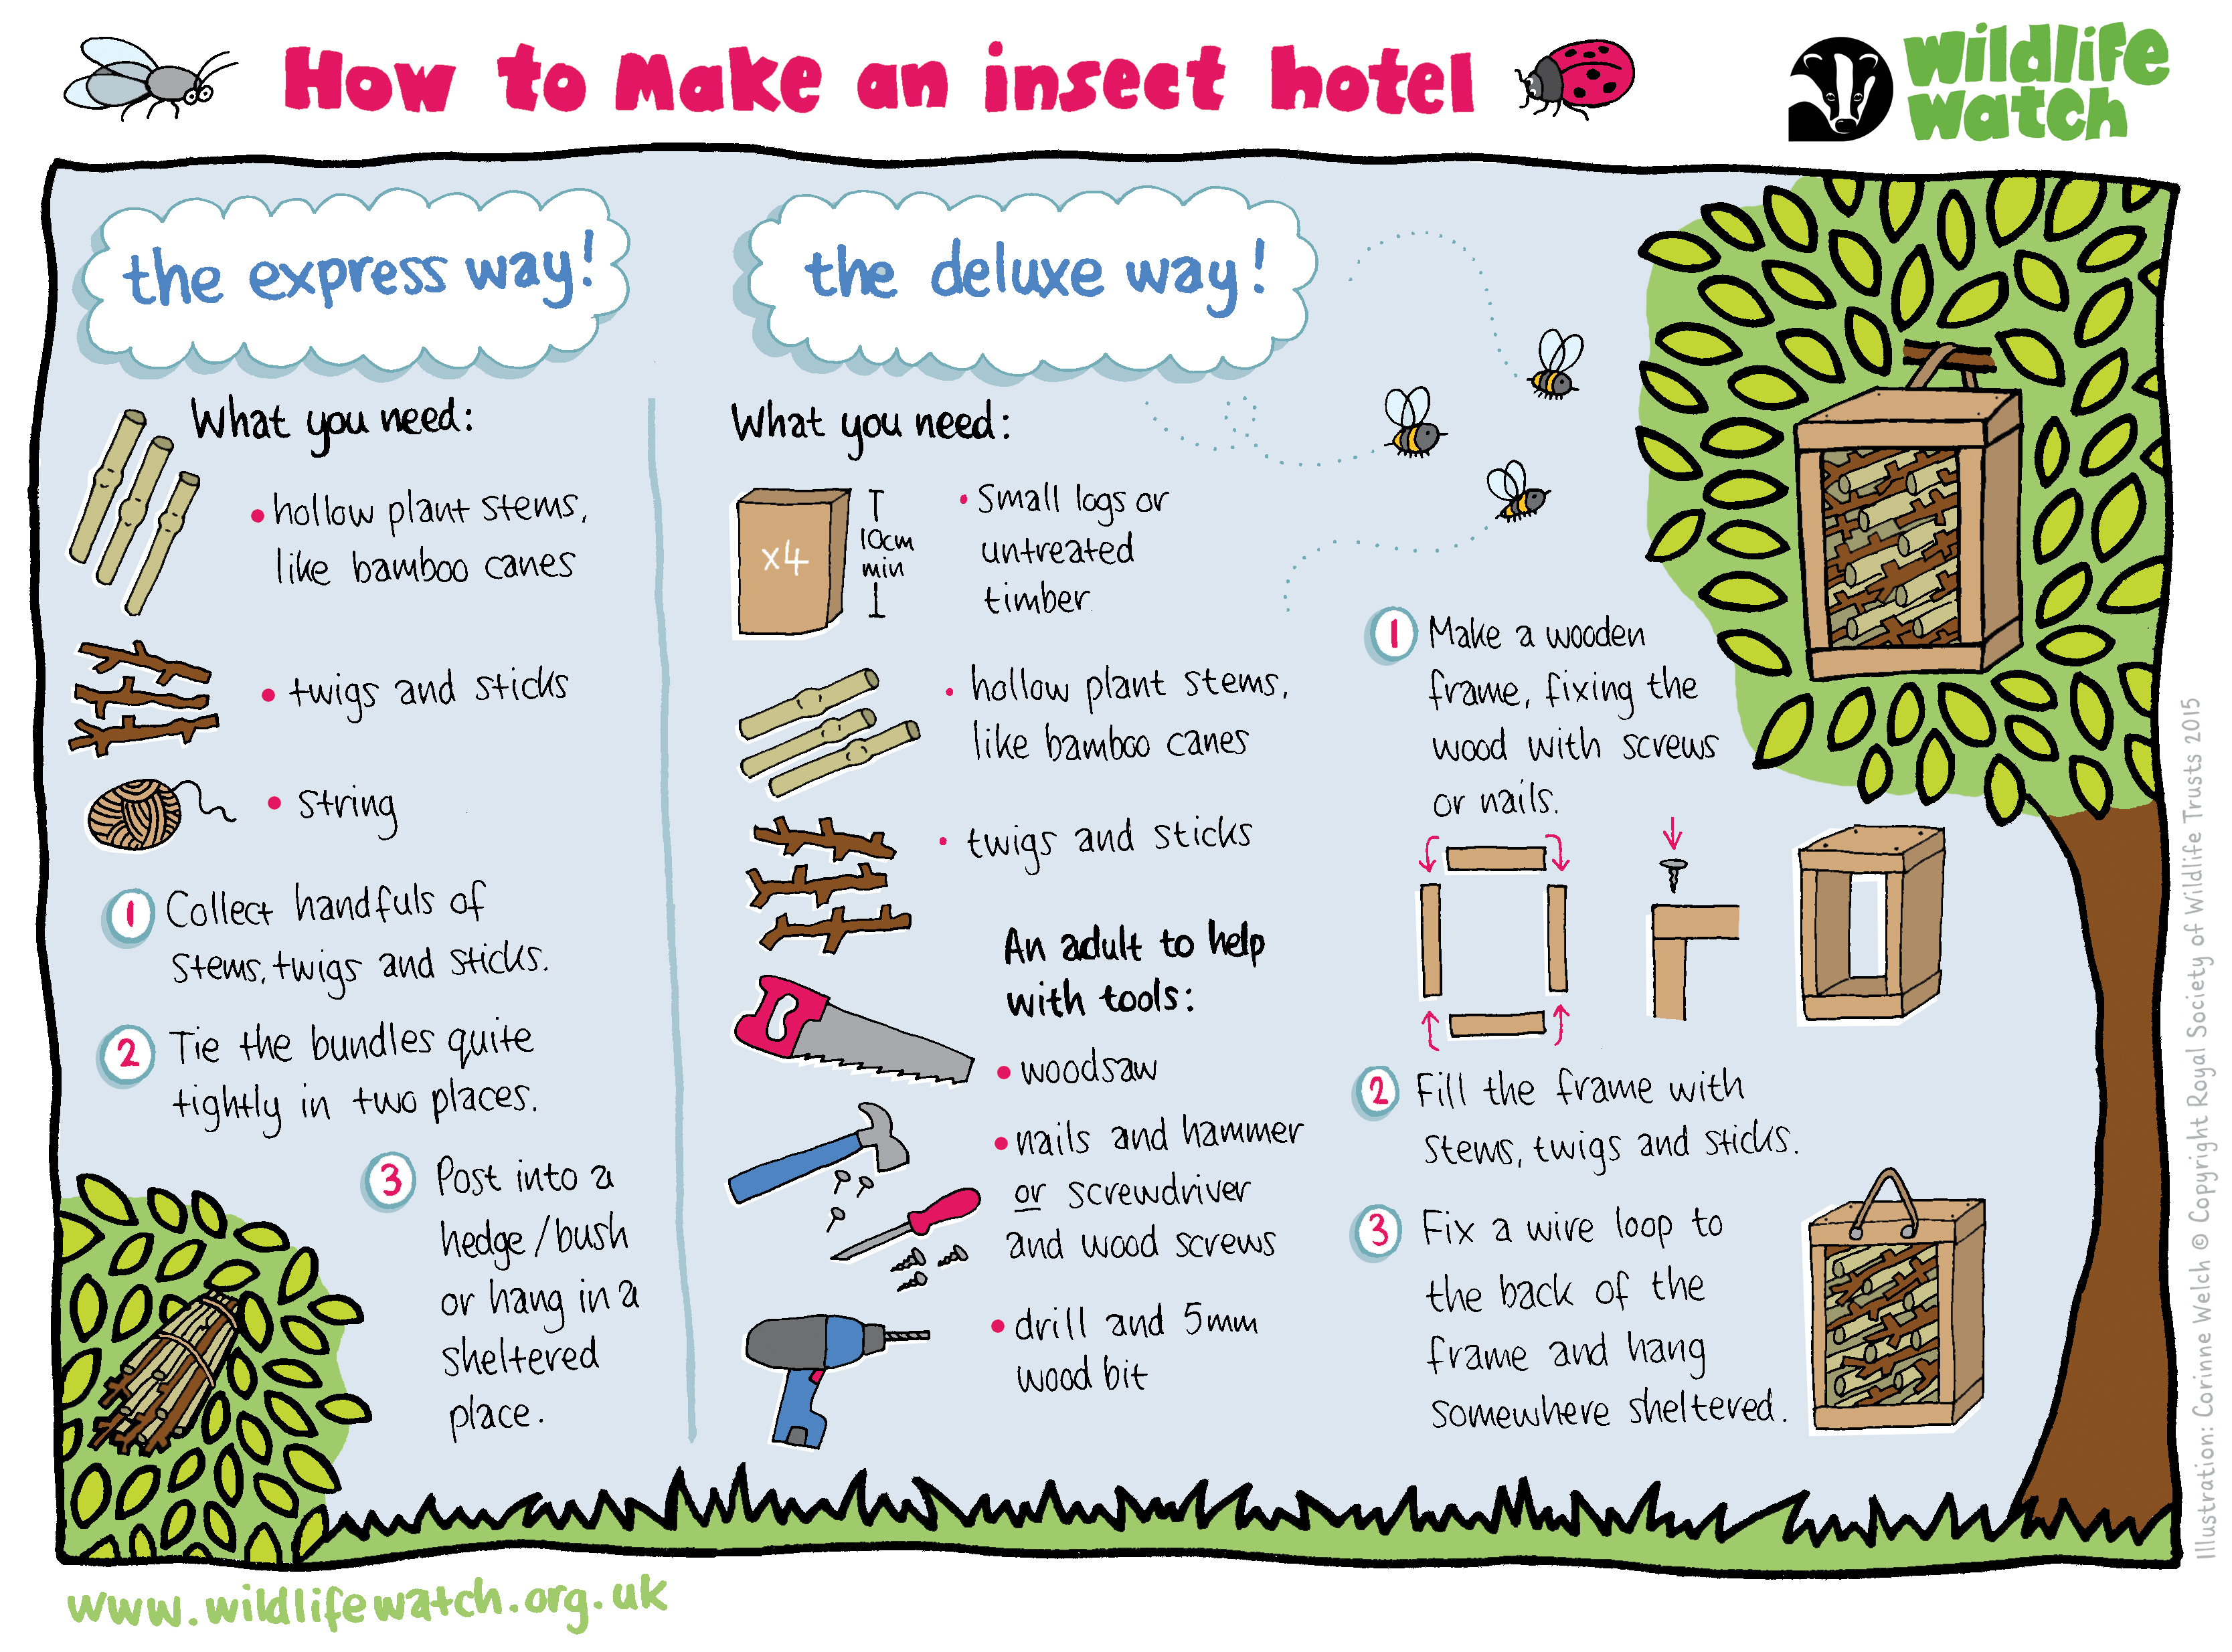 How to Make an insect hotel
Wildlife
Watch
the express way!
What you need:
• hollow plant stems,
like bamboo canes
• twigs and sticks
• string
1 Collect handfuls of
stems, twigs and sticks.
2 Tie the bundles quite
tightly in two places.
3 Post into a
hedge / bush
or hang in a
sheltered
place.
the deluxe way!
What you need:
x4
10cm
min
• Small logs or
untreated
timber
• hollow plant stems,
like bamboo canes
• twigs and sticks
An adult to help
with tools:
• woodsaw
• nails and hammer
or screwdriver
and wood screws
• drill and 5mm
wood bit
1 Make a wooden
frame, fixing the
wood with screws
or nails.
2 Fill the frame with
stems, twigs and sticks.
3 Fix a wire loop to
the back of the
frame and hang
somewhere sheltered.
www.wildlifewatch.org.uk
Illustration: Corinne Welch © Copyright Royal Society of Wildlife Trusts 2015